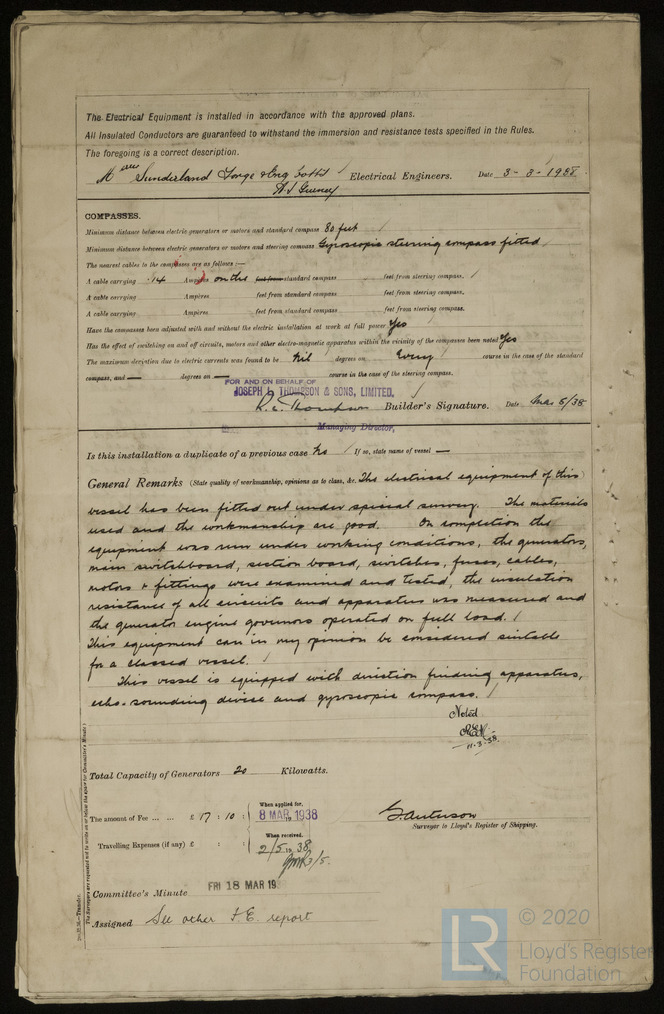 The Electrical Equipment is installed in accordance with the approved plans.
All Insulated Conductors are guaranteed to withstand the immersion and resistance tests specified in the Rules.
The foregoing is a correct description.
Messrs Sunderland Forge & Eng Co Ltd Electrical Engineers. Date 3-3-1938.
COMPASSES.
Minimum distance between electric generators or motors and standard compass 80 feet
Minimum distance between electric generators or motors and steering compass Gyroscopic steering compass fitted
The nearest cables to the compasses are as follows :—
A cable carrying .14 Ampères on the feet from standard compass feet from steering compass.
A cable carrying Ampères feet from standard compass feet from steering compass.
A cable carrying Ampères feet from standard compass feet from steering compass.
Have the compasses been adjusted with and without the electric installation at work at full power Yes
Has the effect of switching on and off circuits, motors and other electro-magnetic apparatus within the vicinity of the compasses been noted Yes
The maximum deviation due to electric currents was found to be Nil degrees on Every course in the case of the standard
compass, and — degrees on — course in the case of the steering compass.
FOR AND ON BEHALF OF
JOSEPH L. THOMPSON & SONS, LIMITED.
R. C. Thompson Builder's Signature. Date Mar 5/38
Managing Director.
Is this installation a duplicate of a previous case No If so, state name of vessel —
General Remarks (State quality of workmanship, opinions as to class, &c. The electrical equipment of this
vessel has been fitted out under special survey. The materials
used and the workmanship are good. On completion the
equipment was run under working conditions, the generators,
main switchboard, section board, switches, fuses, cables,
motors & fittings were examined and tested, the insulation
resistance of all circuits and apparatus was measured and
the generator engine governors operated on full load.
This equipment can in my opinion be considered suitable
for a classed vessel.
This vessel is equipped with direction finding apparatus,
echo-sounding device and gyroscopic compass.
Noted
11.3.38.
Total Capacity of Generators 20 Kilowatts.
The amount of Fee ... ... £ 17 : 10 :
When applied for,
8 MAR 1938
Travelling Expenses (if any) £ : :
When received.
2/5 38
3/5.
Surveyor to Lloyd's Register of Shipping.
Committee's Minute FRI 18 MAR 193
Assigned See other F.E. report
2m.11.36.—Transfer.
The Surveyors are requested not to write on or below the space for Committee's Minute.
LR © 2020
Lloyd's Register
Foundation